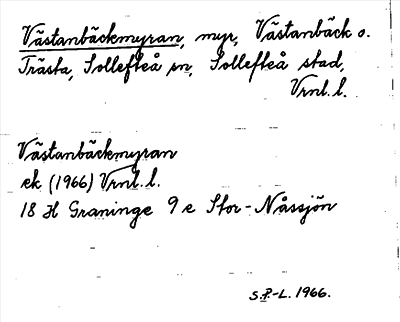 Västanbäckmyran, myr, Västanbäck o.
Trästa, Sollefteå sn, Sollefteå stad,
Vrnl.l.
Västanbäckmyran
ek (1966) Vrnl.l.
18 H Graninge 9 e Stor-Nåssjön
S.P.-L. 1966.